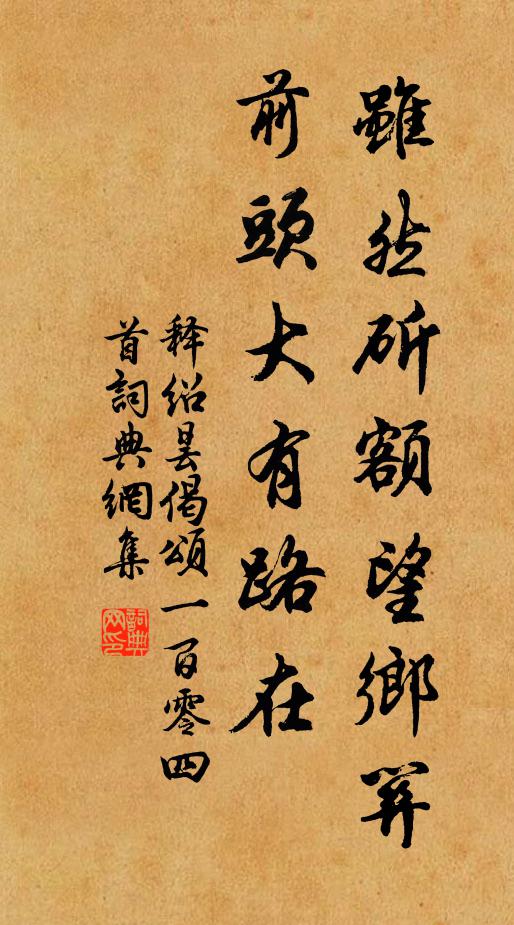 雖然斫額望鄉關
前頭大有路在
释绍昙偈頌一百零四
首詞典網集
詞典
网印